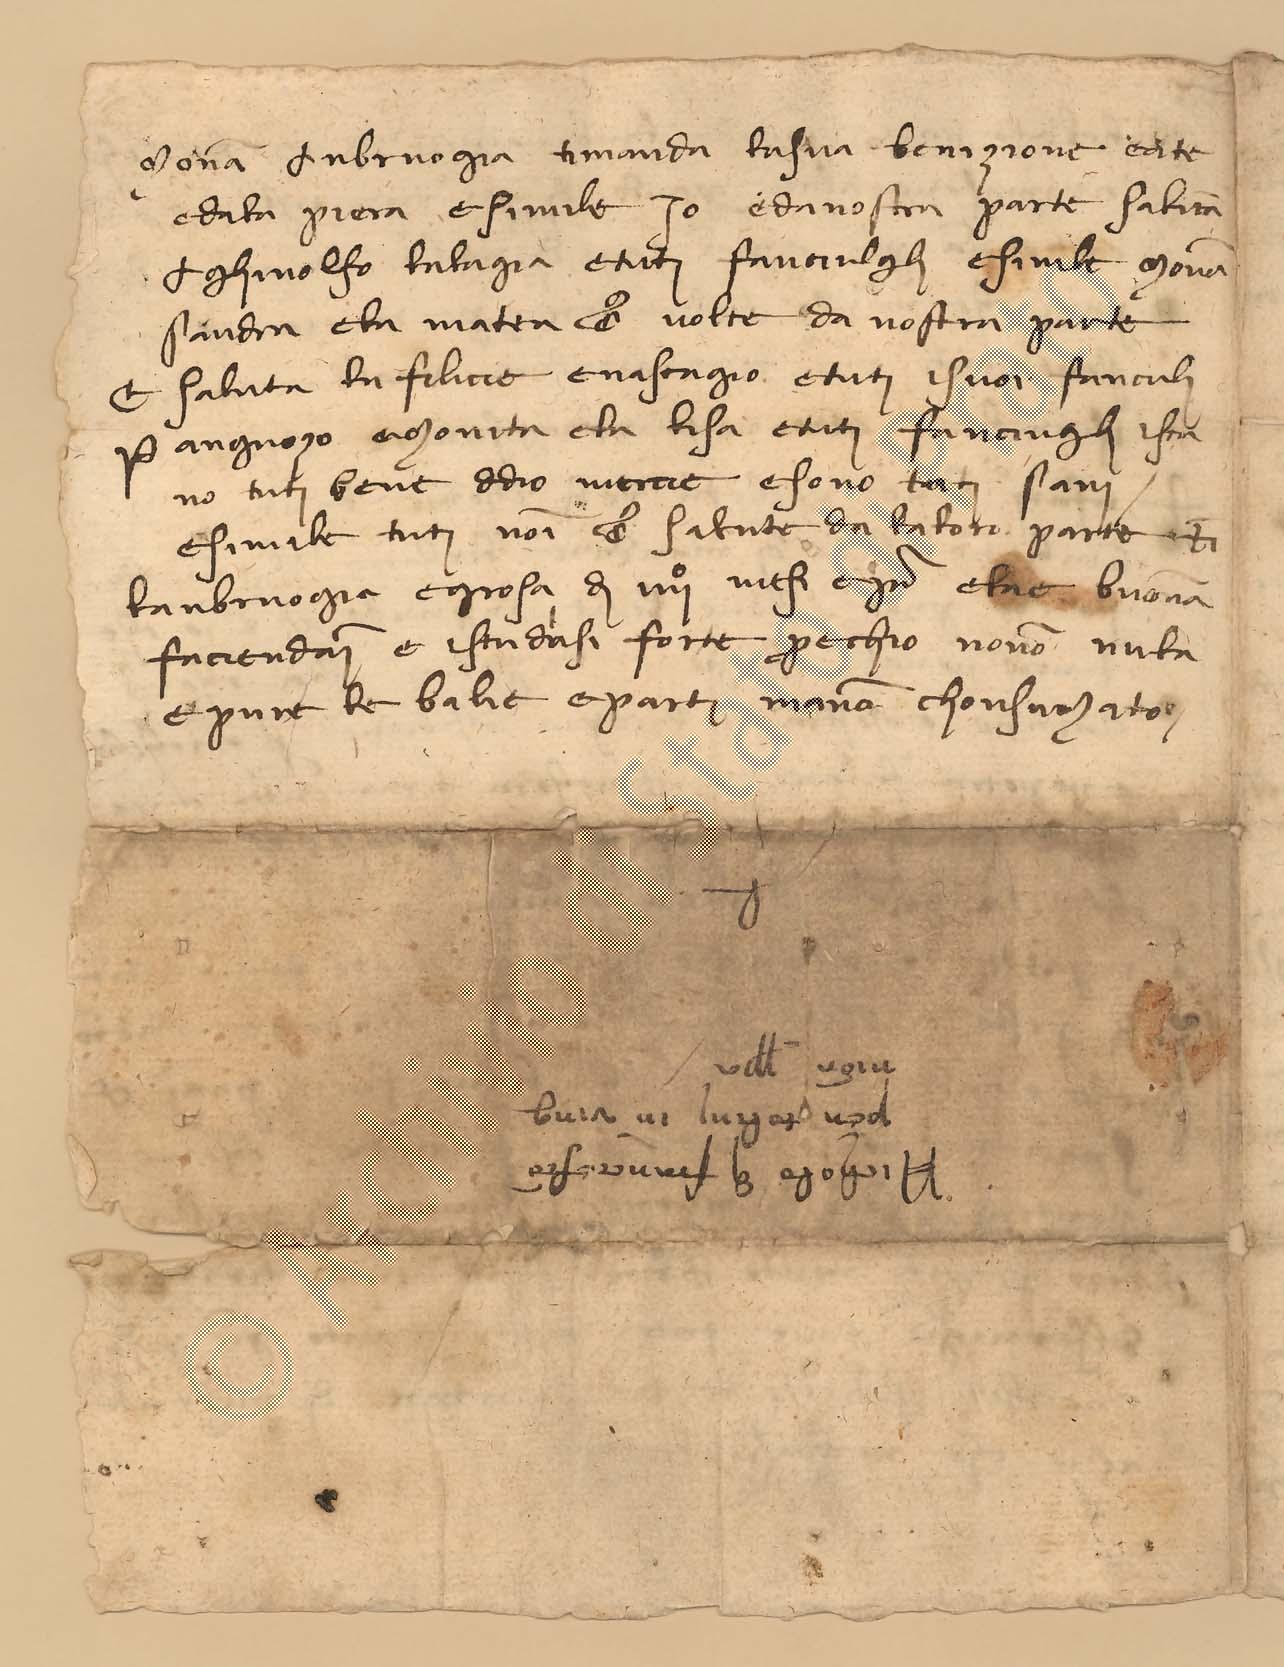 Monā Anbruogia timanda lasua benizione eàte
edala piera esimile Jo edanostra parte salutā
Aghinolfo lalagia etutj fanciulglj esimile Monā
sandra ela matea volte da nostra parte
E saluta la felicie enastagio etutj isuoi fanculj
P angnolo eMonita ela lisa etutj fanciuglj ista
no tutj bene ddio mercie esono tutj sanj
esimile tutj noi salute da laloro parte
lanbruogia egrosa dj iiijº mesi elae buonā
faciendaī e istudasi forte perchio nonō nula
epure le balie epartj manō chonsumatoj
Nicholo dj francescho
in ving
© Archivio di Stato di Prato